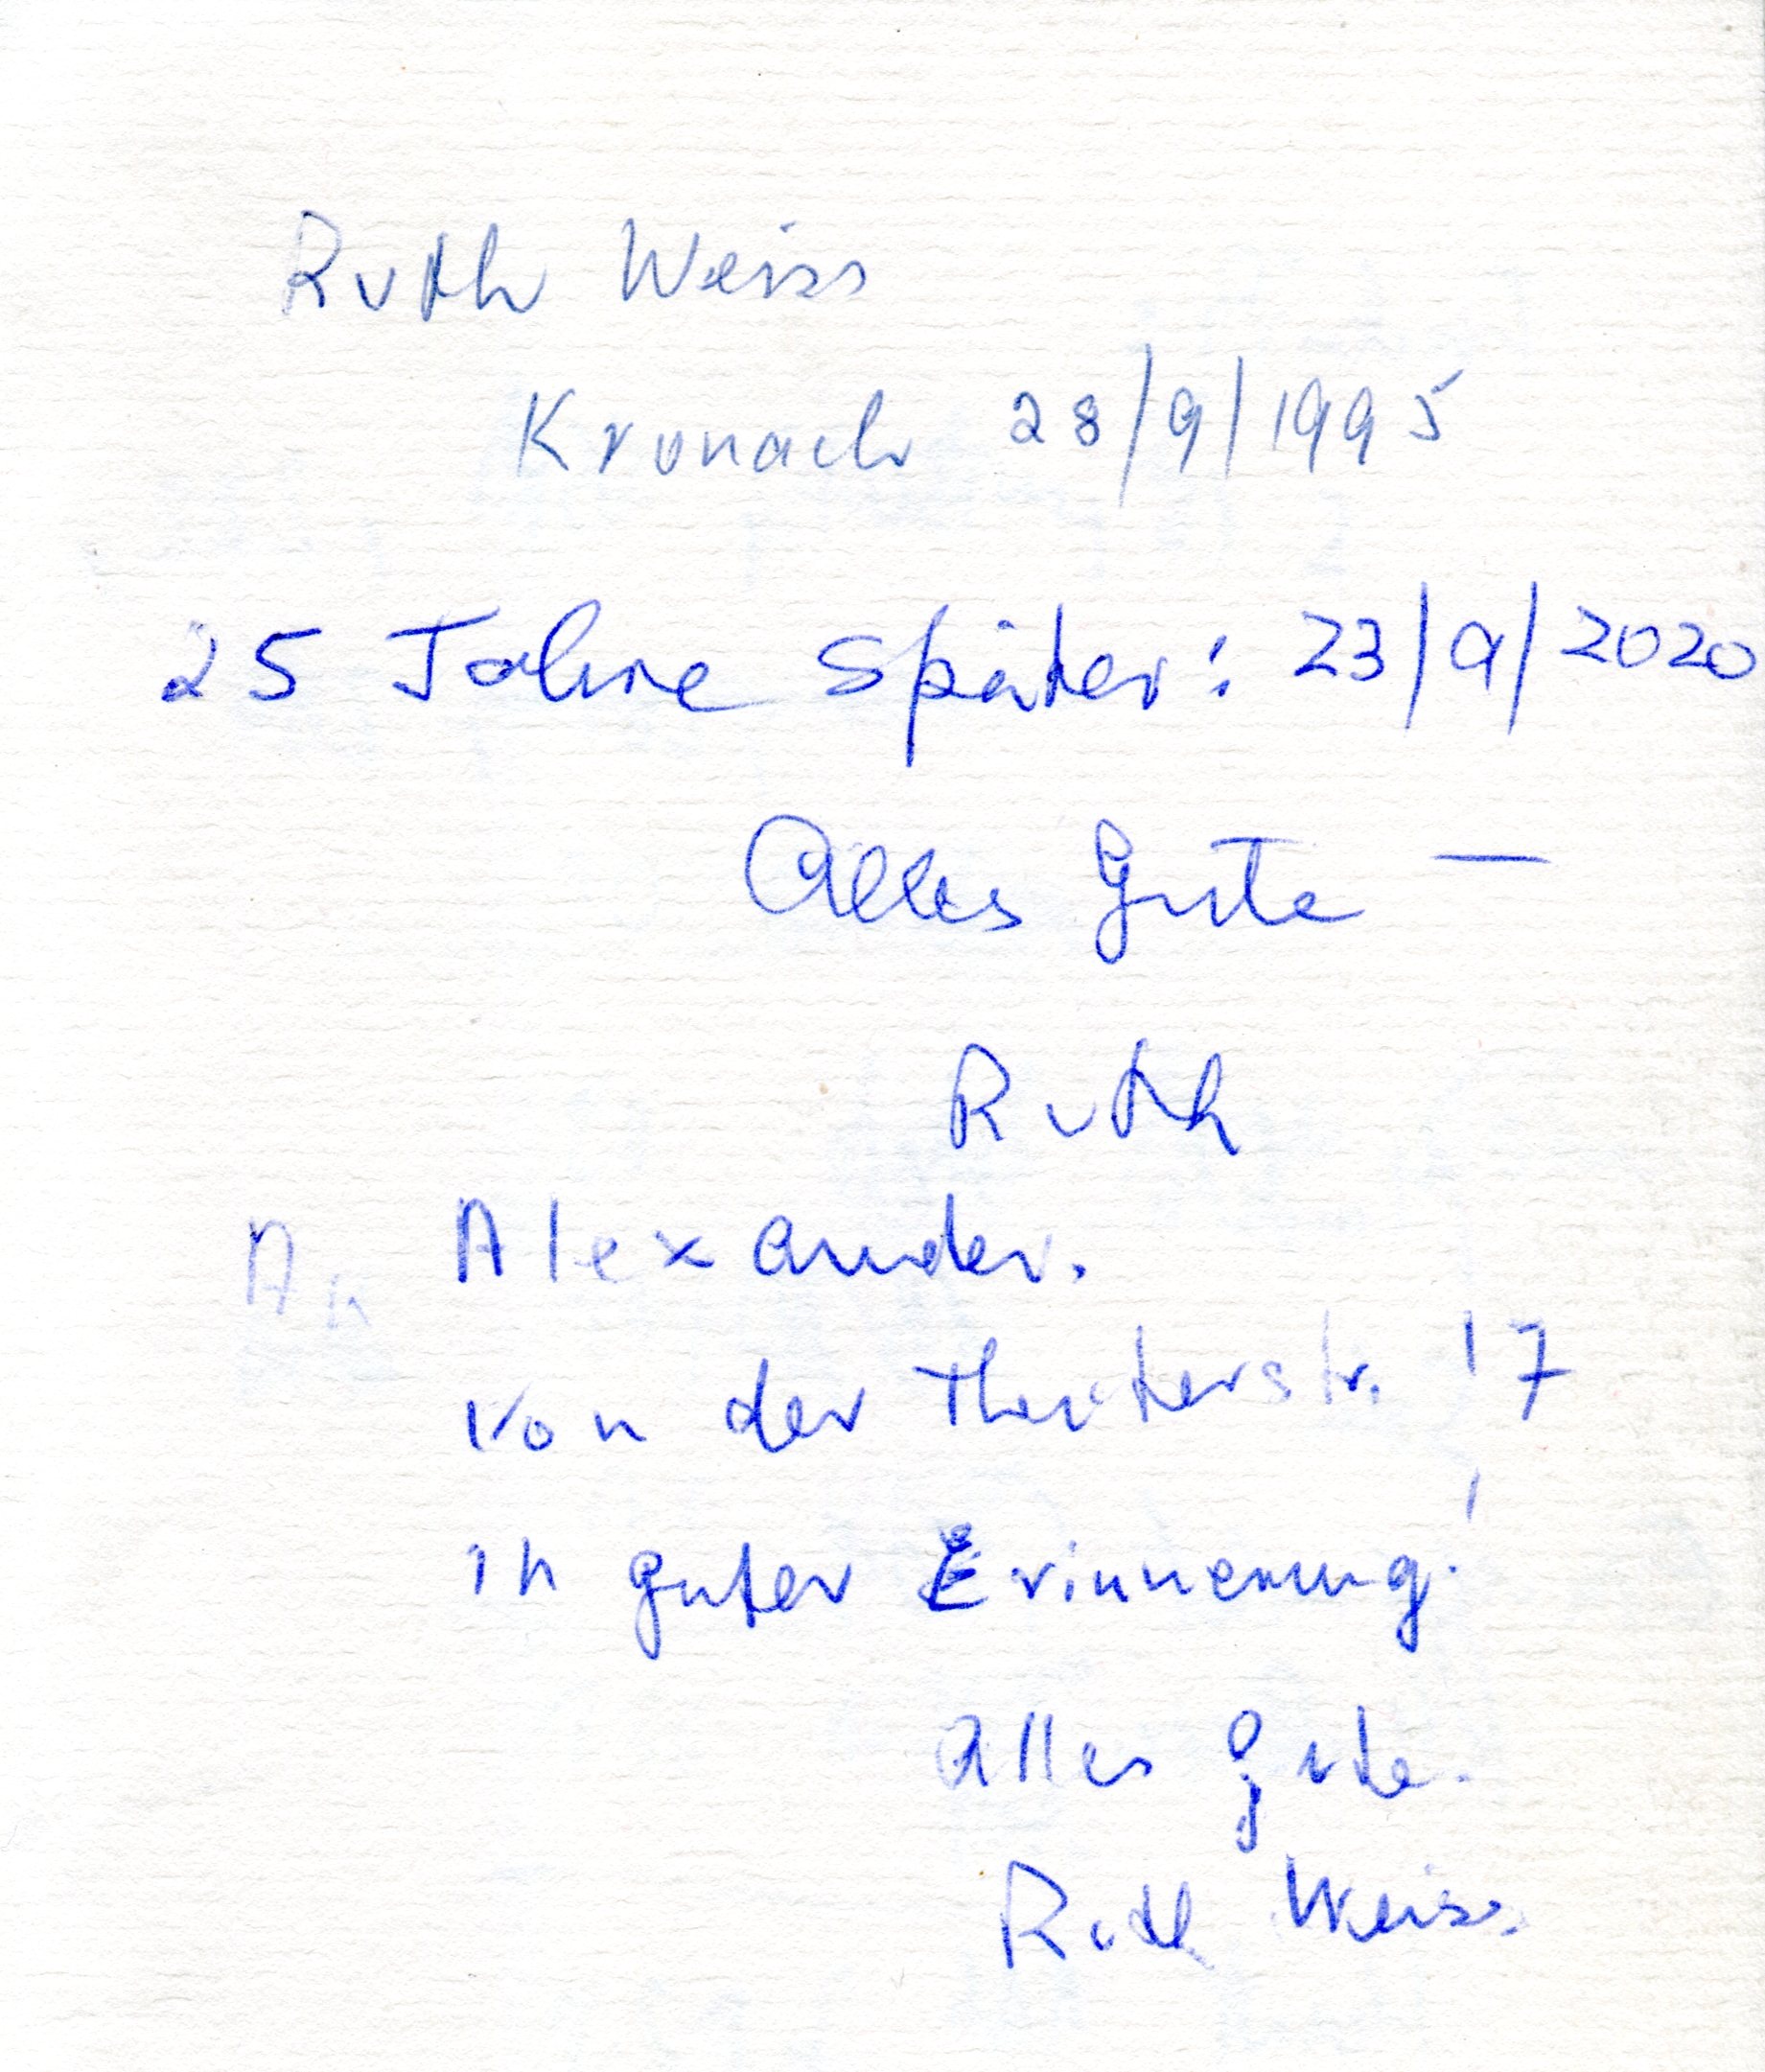 Ruth Weiss
Kronach 28/9/1995
25 Jahre später: 23/9/2020
Alles Gute —
Ruth
An Alexander.
von der Theaterstr. 17
in guter Erinnerung!
Alles Gute.
Ruth Weiss.